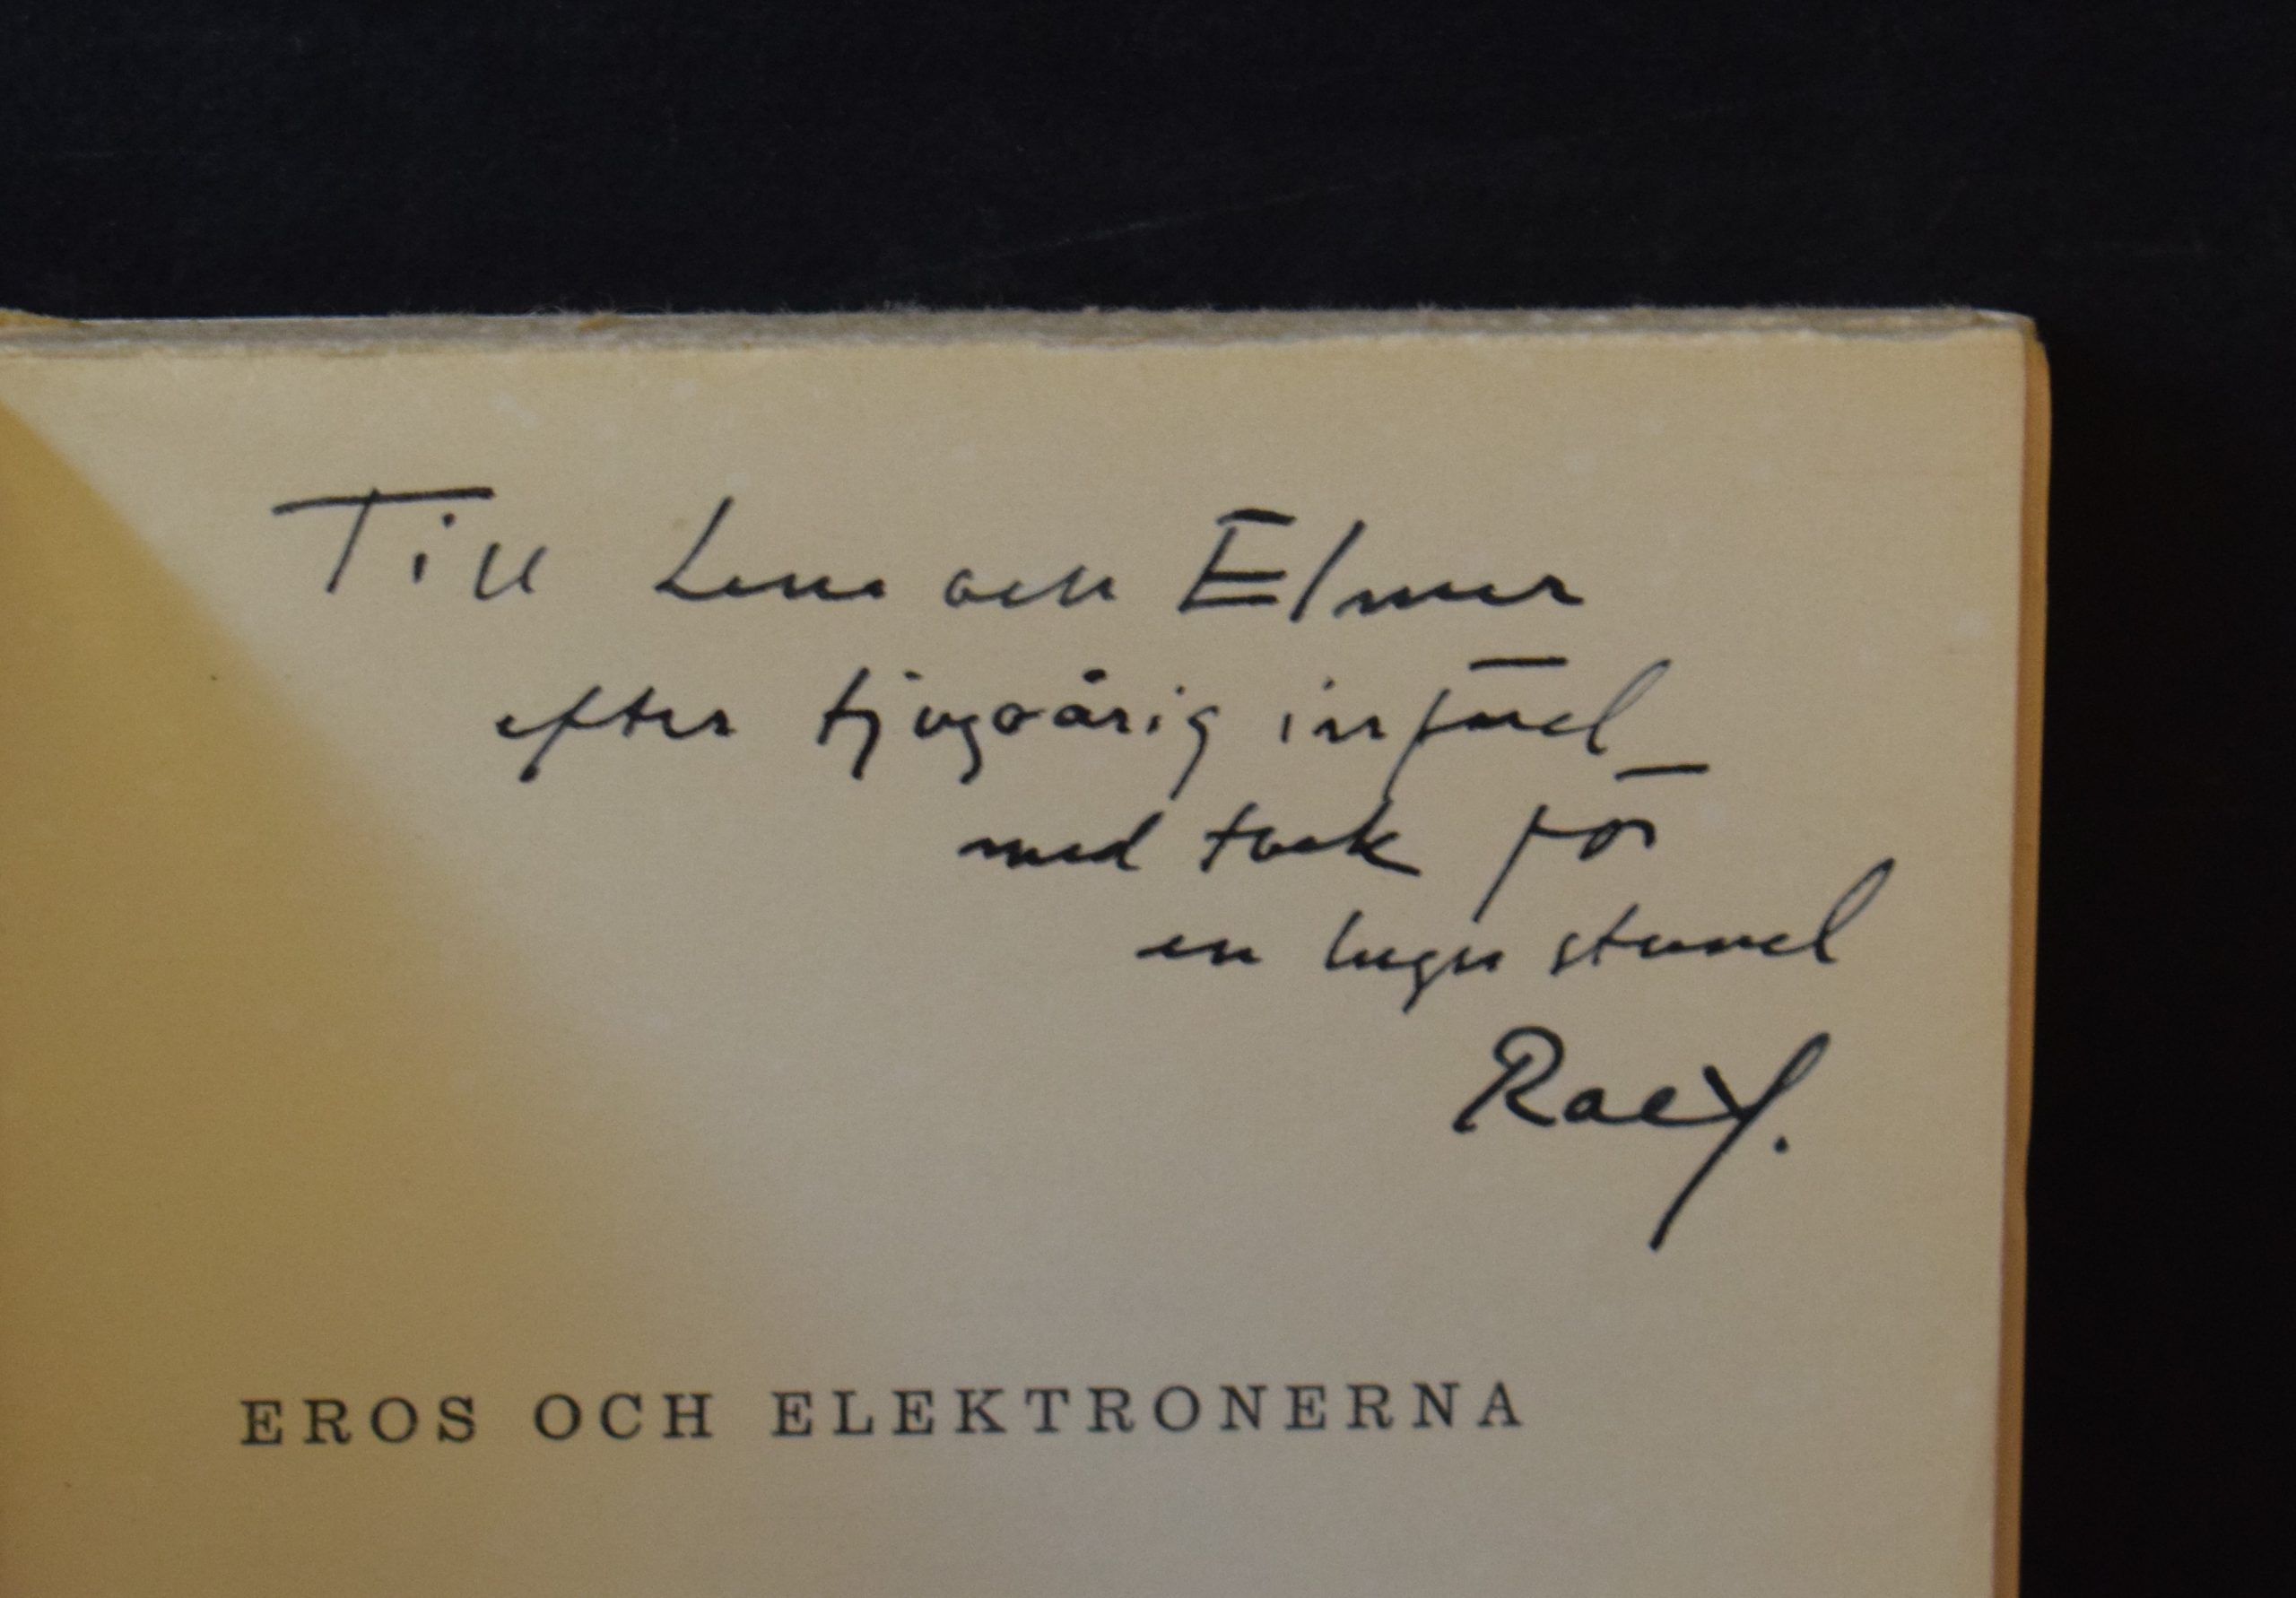 Till Lena och Elmer
efter tjugoårig
med tack för
en lugn stund
Ralf.
EROS OCH ELEKTRONERNA